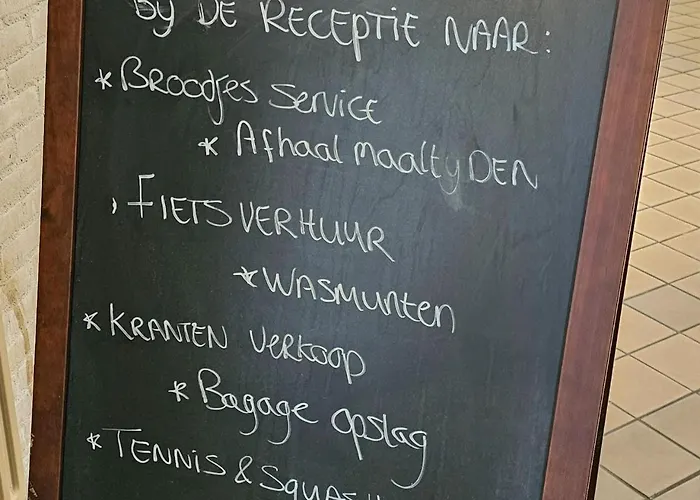 By DE RECEPTIE NAAR:
* Broodjes Service
* Afhaal maaltyDEN
, FIETSVERHUUR
* WASMUNTEN
* KRANTEN Verkoop
* Bagage opslag
* TENNIS & SQUASH